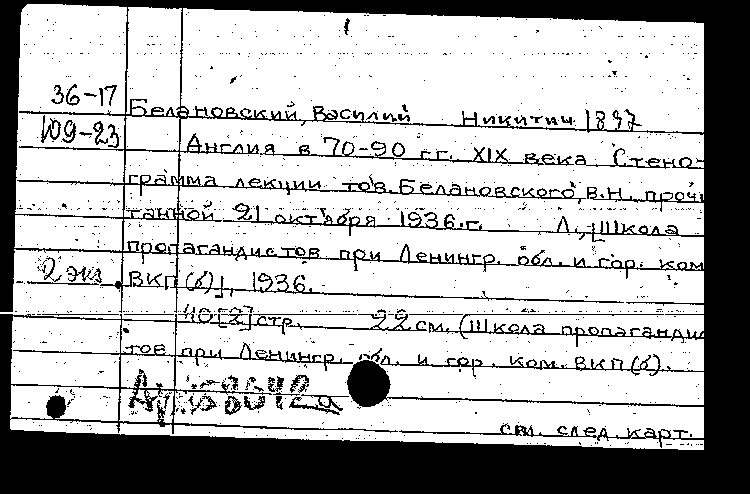 1
36-17
Белановский, Василий Никитич 1897
109-23
Англия в 70-90 гг. XIX века. Стено-
грамма лекции тов. Белановского, В.Н., прочи
танной 21 октября 1936.г. Л., [Школа
пропагандистов при Ленингр. обл. и гор. ком
2 экз. ВКП(б)], 1936.
40[2]стр. 22 см. (Школа пропагандис
тов при Ленингр. обл. и гор. ком. ВКП(б).
см. след. карт.